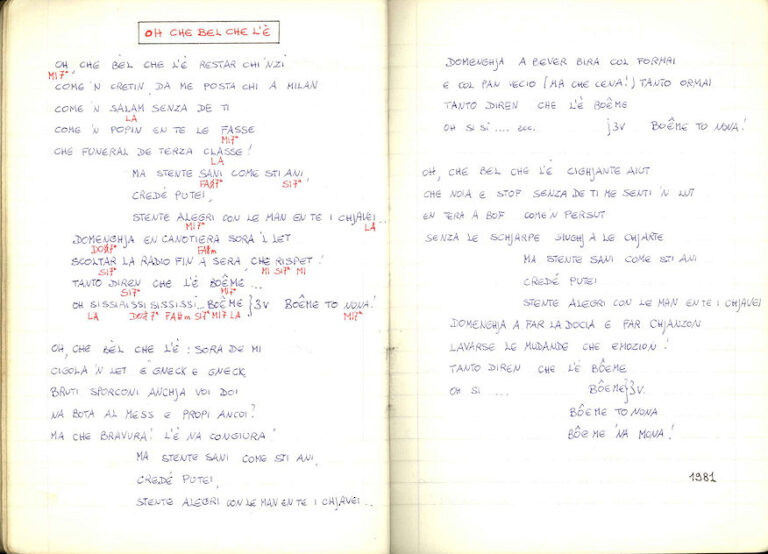 OH CHE BEL CHE L'È
OH CHE BÈL CHE L'È RESTAR CHÌ 'NZÌ
MI7ª
COME 'N CRETIN, DA ME POSTA CHI A MILAN
COME 'N SALAM SENZA DE TI
LA
COME 'N POPIN EN TE LE FASSE
MI7ª
CHE FUNERAL DE TERZA CLASSE!
LA
MA STENTE SANI COME STI ANI,
FA#7ª SI7ª
CREDÉ PUTEI,
STENTE ALEGRI CON LE MAN EN TE I CHJAVEI...
MI7ª LA
DOMENGHJA EN CANOTIERA SORA 'L LET
DO#7ª FA#m
SCOLTAR LA RADIO FIN A SERA CHE RISPET!
SI7ª MI SI7ª MI
TANTO DIREN CHE L'È BOÊME...
SI7ª MI7ª
OH SISSIAISSI SISSISSI... BOÊME }3V BOÊME TO NONA!
LA DO#7ª FA#m SI7ª MI7 LA MI7ª
OH, CHE BÈL CHE L'È: SORA DE MI
CIGOLA 'N LET E GNECK E GNECK,
BRUTI SPORCONI ANCHJA VOI DOI
NA BOTA AL MESS E PROPI ANCOI?
MA CHE BRAVURA! L'È NA CONGIURA!
MA STENTE SANI COME STI ANI,
CREDÉ PUTEI,
STENTE ALEGRI CON LE MAN EN TE I CHJAVEI...
DOMENGHJA A BEVER BIRA COL FORMAI
E COL PAN VECIO (MA CHE CENA!) TANTO ORMAI
TANTO DIREN CHE L'È BOÊME
OH SI SI.... ecc. }3V BOÊME TO NONA!
OH, CHE BEL CHE L'È CIGHJANTE AIUT
CHE NOIA E STOF SENZA DE TI ME SENTI 'N LUT
EN TERA A BOF COME 'N PERSUT
SENZA LE SCHJARPE SUGHJ A LE CHJARTE
MA STENTE SANI COME STI ANI
CREDÉ PUTEI
STENTE ALEGRI CON LE MAN EN TE I CHJAVEI
DOMENGHJA A FAR LA DOCIA E FAR CHJANZON
LAVARSE LE MUDANDE CHE EMOZION!
TANTO DIREN CHE L'È BÔEME
OH SI .... BÔEME}3V.
BÔEME TO NONA
BÔEME 'NA MONA!
1981